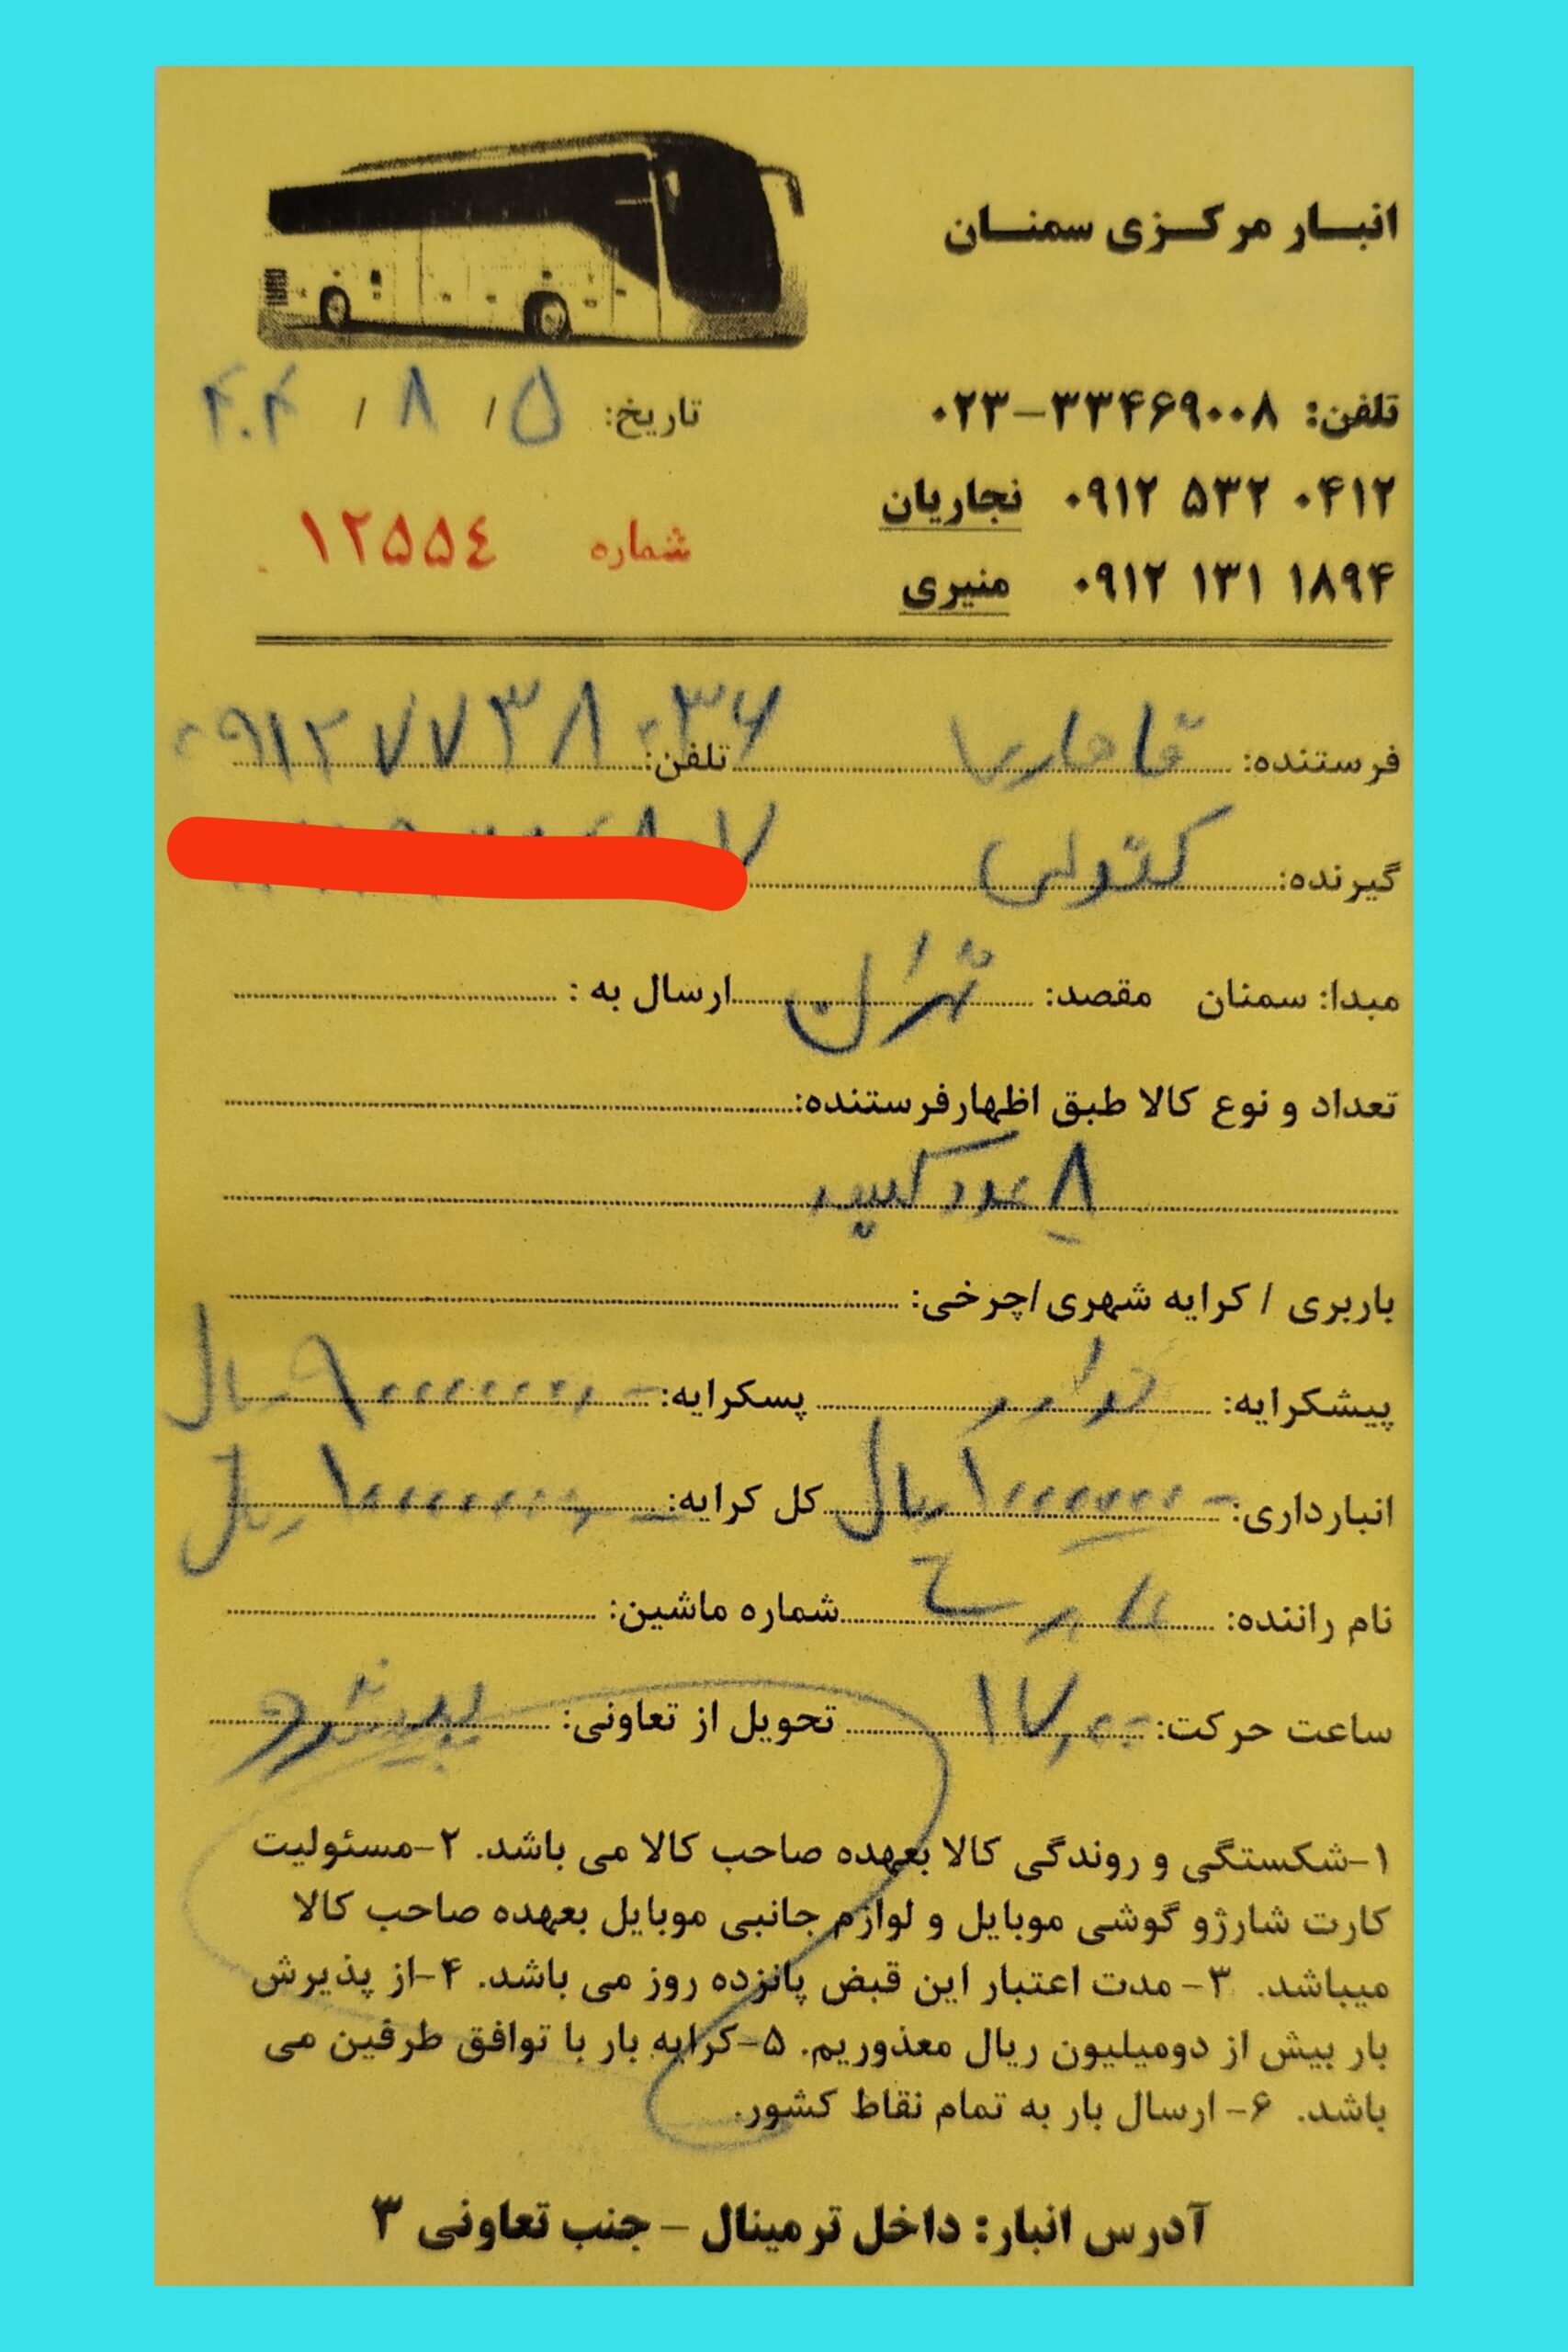 انبار مرکزی سمنان
تلفن: ۰۲۳-۳۳۴۶۹۰۰۸
تاریخ: ۵ / ۸ / ۴۰۴
۰۹۱۲ ۵۳۲ ۰۴۱۲ نجاریان
شماره ۱۲۵۵٤
۰۹۱۲ ۱۳۱ ۱۸۹۴ منیری
فرستنده: تلفن: ۰۹۱۲۷۷۳۸۰۳۶
گیرنده: کتولی
مبدا: سمنان مقصد: تهران ارسال به :
تعداد و نوع کالا طبق اظهارفرستنده:
۸ عدد کیسه
باربری / کرایه شهری/چرخی:
پیشکرایه: ندارد پسکرایه: ریال
انبارداری: ریال کل کرایه: ریال
نام راننده: شماره ماشین:
ساعت حرکت: ۱۷,۰۰ تحویل از تعاونی:
۱-شکستگی و روندگی کالا بعهده صاحب کالا می باشد. ۲-مسئولیت
کارت شارژو گوشی موبایل و لوازم جانبی موبایل بعهده صاحب کالا
میباشد. ۳- مدت اعتبار این قبض پانزده روز می باشد. ۴-از پذیرش
بار بیش از دومیلیون ریال معذوریم. ۵-کرایه بار با توافق طرفین می
باشد. ۶- ارسال بار به تمام نقاط کشور.
آدرس انبار: داخل ترمینال - جنب تعاونی ۳